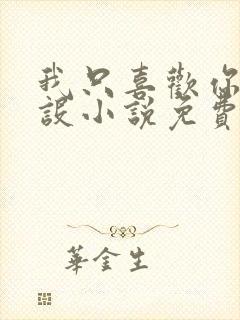 我只喜歡你
設小說免費
華金生